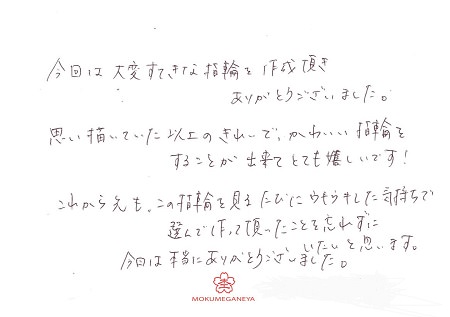 今回は大変すてきな指輪を作成頂き
ありがとうございました。
思い描いていた以上のきれいで、かわいい指輪を
することが出来てとても嬉しいです！
これから先も、この指輪を見るたびにウキウキした気持ちで
選んで作って頂ったことを忘れずに
いたいと思います。
今回は本当にありがとうございました。
MOKUMEGANEYA